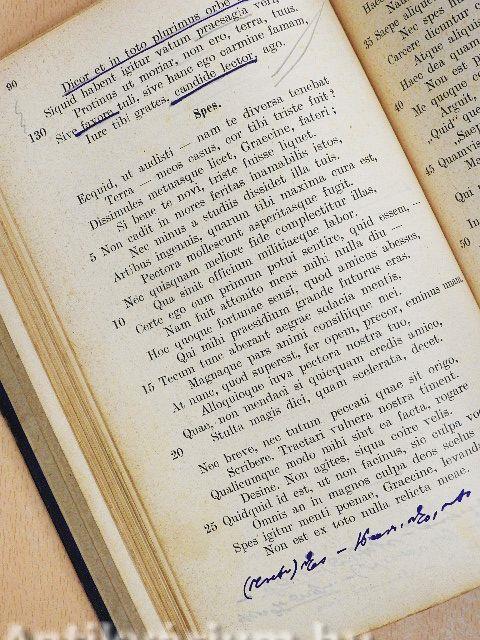 90
Dicor et in toto plurimus orbe
Siquid habent igitur vatum praesagia veri,
Protinus ut moriar, non ero, terra, tuus.
130 Sive favore tuli, sive hanc ego carmine famam,
Iure tibi grates, candide lector, ago.
Spes.
Ecquid, ut audisti — nam te diversa tenebat
Terra — meos casus, cor tibi triste fuit?
Dissimules metuasque licet, Graecine, fateri;
Si bene te novi, triste fuisse liquet.
5 Non cadit in mores feritas inamabilis istos,
Nec minus a studiis dissidet illa tuis.
Artibus ingenuis, quarum tibi maxima cura est,
Pectora mollescunt asperitasque fugit.
Nec quisquam meliore fide complectitur illas,
10 Qua sinit officium militiaeque labor.
Certe ego cum primum potui sentire, quid essem, —
Nam fuit attonito mens mihi nulla diu —
Hoc quoque fortunae sensi, quod amicus abesses,
Qui mihi praesidium grande futurus eras.
15 Tecum tunc aberant aegrae solacia mentis,
Magnaque pars animi consiliique mei.
At nunc, quod superest, fer opem, precor, eminus unam,
Alloquioque iuva pectora nostra tuo,
Quae, non mendaci si quicquam credis amico,
20 Stulta magis dici, quam scelerata, decet.
Nec breve, nec tutum peccati quae sit origo,
Scribere. Tractari vulnera nostra timent.
Qualicumque modo mihi sint ea facta, rogare
Desine. Non agites, siqua coire velis.
25 Quidquid id est, ut non facinus, sic culpa vocandum
Omnis an in magnos culpa deos scelus
Spes igitur menti poenae, Graecine, levandae
Non est ex toto nulla relicta meae.
35 Saepe
Nec spes
Carcere dicuntur
Atque aliquis
Haec dea quamvis
40 Non est
Me quoque
Arguit,
„Quid"
„Saepe
45 Quamvis
Qui
50